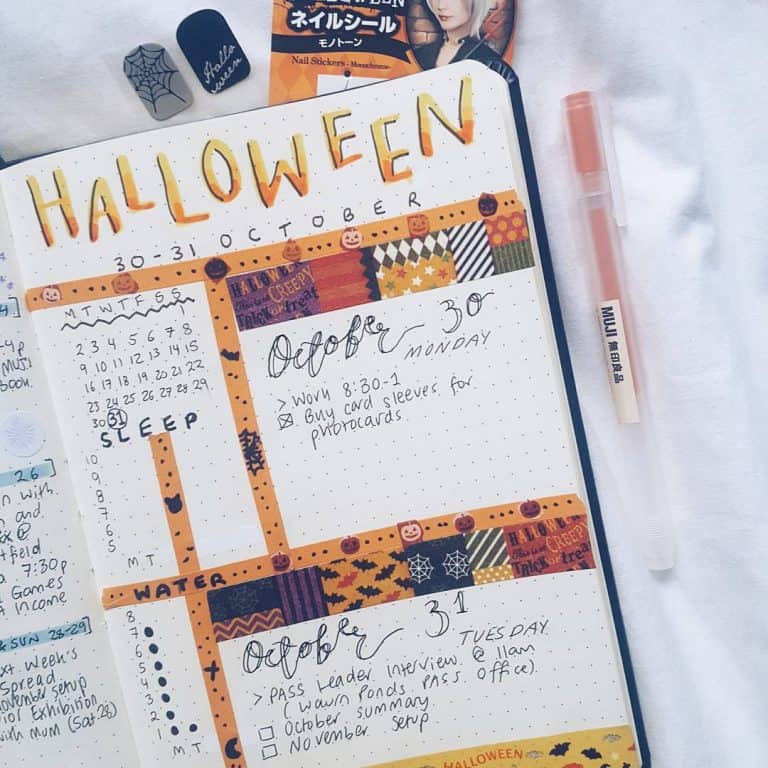 ネイルシール
モノトーン
Nail Stickers - Monochrome -
Hallo
ween
HALLOWEEN
30-31 OCTOBER
M T W T F S S
1
2 3 4 5 6 7 8
9 10 11 12 13 14 15
16 17 18 19 20 21 22
23 24 25 26 27 28 29
30 31
SLEEP
10
9
8
7
6
5
M T
HALLOWEEN
This is a CREEPY
Trick or treat
October 30
MONDAY
> Work 8:30-1
Buy card sleeves for
photocards
MUJI 無印良品
WATER
8
7
6
5
4
3
2
1
M T
HALLOWEEN
This is a CREEPY
Trick or treat
October 31
TUESDAY
> PASS Leader interview @ 11am
(Waurn Ponds PASS Office)
October summary
November setup
HALLOWEEN
MUJI
book.
26
with
and
@
7:30p
Games
Income
& SUN 28-29
Week's
Spread
November setup
Exhibition
with mum (Sat 28)